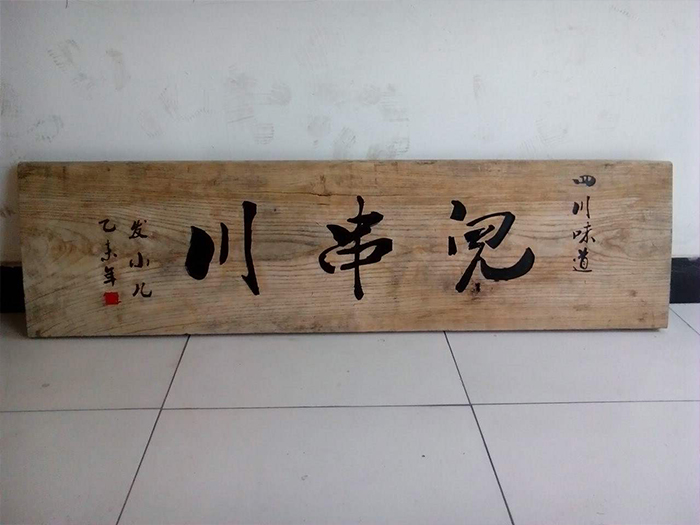 四川味道
川串兒
发小儿
乙未年